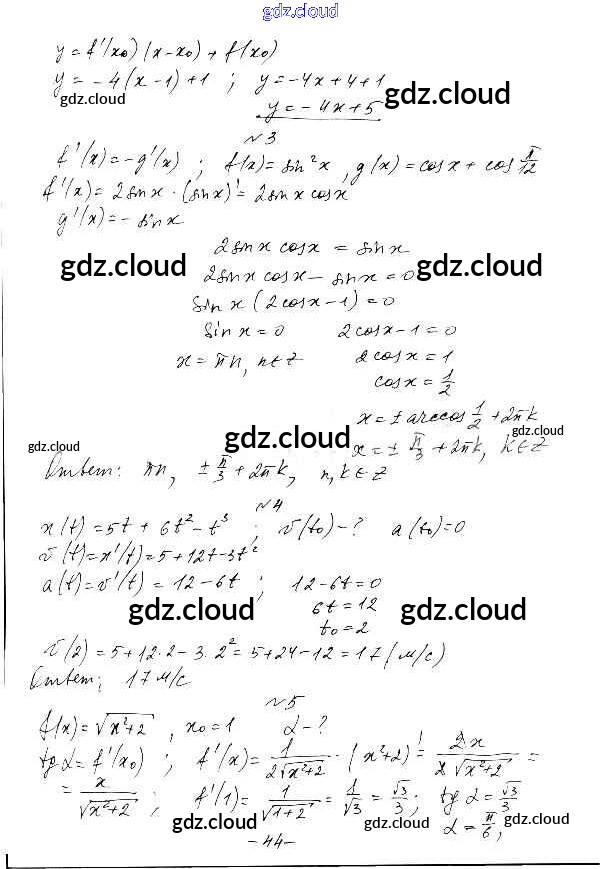 gdz.cloud
y = f'(x₀)(x-x₀) + f(x₀)
y = -4(x-1)+1 ; y = -4x+4+1
gdz.cloud gdz.cloud
y = -4x+5
№3
f'(x) = -g'(x) ; f(x) = sin²x , g(x) = cosx + cos π/12
f'(x) = 2sinx · (sinx)' = 2sinx cosx
g'(x) = - sinx
2sinx cosx = sinx
gdz.cloud gdz.cloud
2sinx cosx - sinx = 0
sinx (2cosx-1) = 0
sinx = 0 2cosx-1 = 0
x = πn, n∈Z 2cosx = 1
cosx = 1/2
x = ± arccos 1/2 + 2πk
gdz.cloud gdz.cloud gdz.cloud
x = ± π/3 + 2πk, k∈Z
Ответ: πn, ± π/3 + 2πk, n,k∈Z
№4
x(t) = 5t + 6t² - t³ ; v(t₀) - ? a(t₀) = 0
v(t) = x'(t) = 5+12t-3t²
a(t) = v'(t) = 12-6t ; 12-6t = 0
6t = 12
gdz.cloud gdz.cloud
t₀ = 2
v(2) = 5+12·2-3·2² = 5+24-12 = 17 (м/с)
Ответ: 17 м/с
№5
f(x) = √(x²+2) , x₀ = 1 α - ?
tg α = f'(x₀) ; f'(x) = 1/(2√(x²+2)) · (x²+2)' = 2x/(2√(x²+2)) =
= x/√(x²+2) ; f'(1) = 1/√(1+2) = 1/√3 = √3/3 ; tg α = √3/3
gdz.cloud gdz.cloud gdz.cloud
α = π/6 ,
-44-